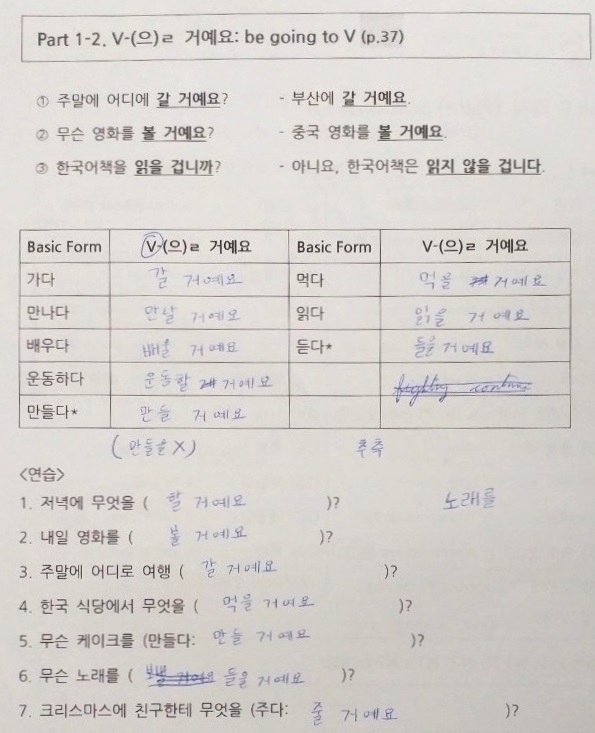 Part 1-2. V-(으)ㄹ 거예요: be going to V (p.37)
① 주말에 어디에 갈 거예요? - 부산에 갈 거예요.
② 무슨 영화를 볼 거예요? - 중국 영화를 볼 거예요.
③ 한국어책을 읽을 겁니까? - 아니요, 한국어책은 읽지 않을 겁니다.
Basic Form V-(으)ㄹ 거예요 Basic Form V-(으)ㄹ 거예요
가다 갈 거예요 먹다 먹을 거예요
만나다 만날 거예요 읽다 읽을 거예요
배우다 배울 거예요 듣다* 들을 거예요
운동하다 운동할 거예요
만들다* 만들 거예요
(만들을 X) 추측
<연습>
1. 저녁에 무엇을 ( 할 거예요 )? 노래를
2. 내일 영화를 ( 볼 거예요 )?
3. 주말에 어디로 여행 ( 갈 거예요 )?
4. 한국 식당에서 무엇을 ( 먹을 거예요 )?
5. 무슨 케이크를 (만들다: 만들 거예요 )?
6. 무슨 노래를 ( 들을 거예요 )?
7. 크리스마스에 친구한테 무엇을 (주다: 줄 거예요 )?